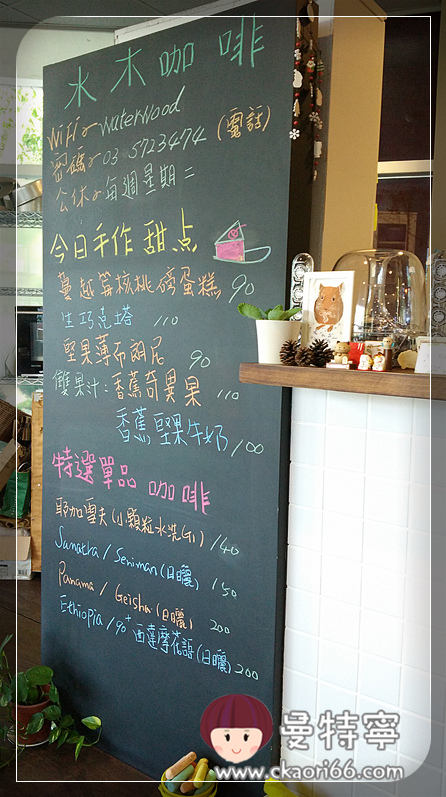 水木咖啡
WiFi~WaterWood
密碼~03-5723474(電話)
公休~每週星期二
今日手作甜点
蔓越莓核桃磅蛋糕 90
生巧克塔 110
堅果薄布朗尼 90
雙果汁:香蕉奇異果 110
香蕉堅果牛奶 100
特選單品咖啡
耶加雪夫(小顆粒水洗G1) 140
Sumatra / Seniman(日曬) 150
Panama / Geisha(日曬) 200
Ethiopia / 90+ 西達摩花語(日曬) 200
曼特寧
www.ckaori66.com